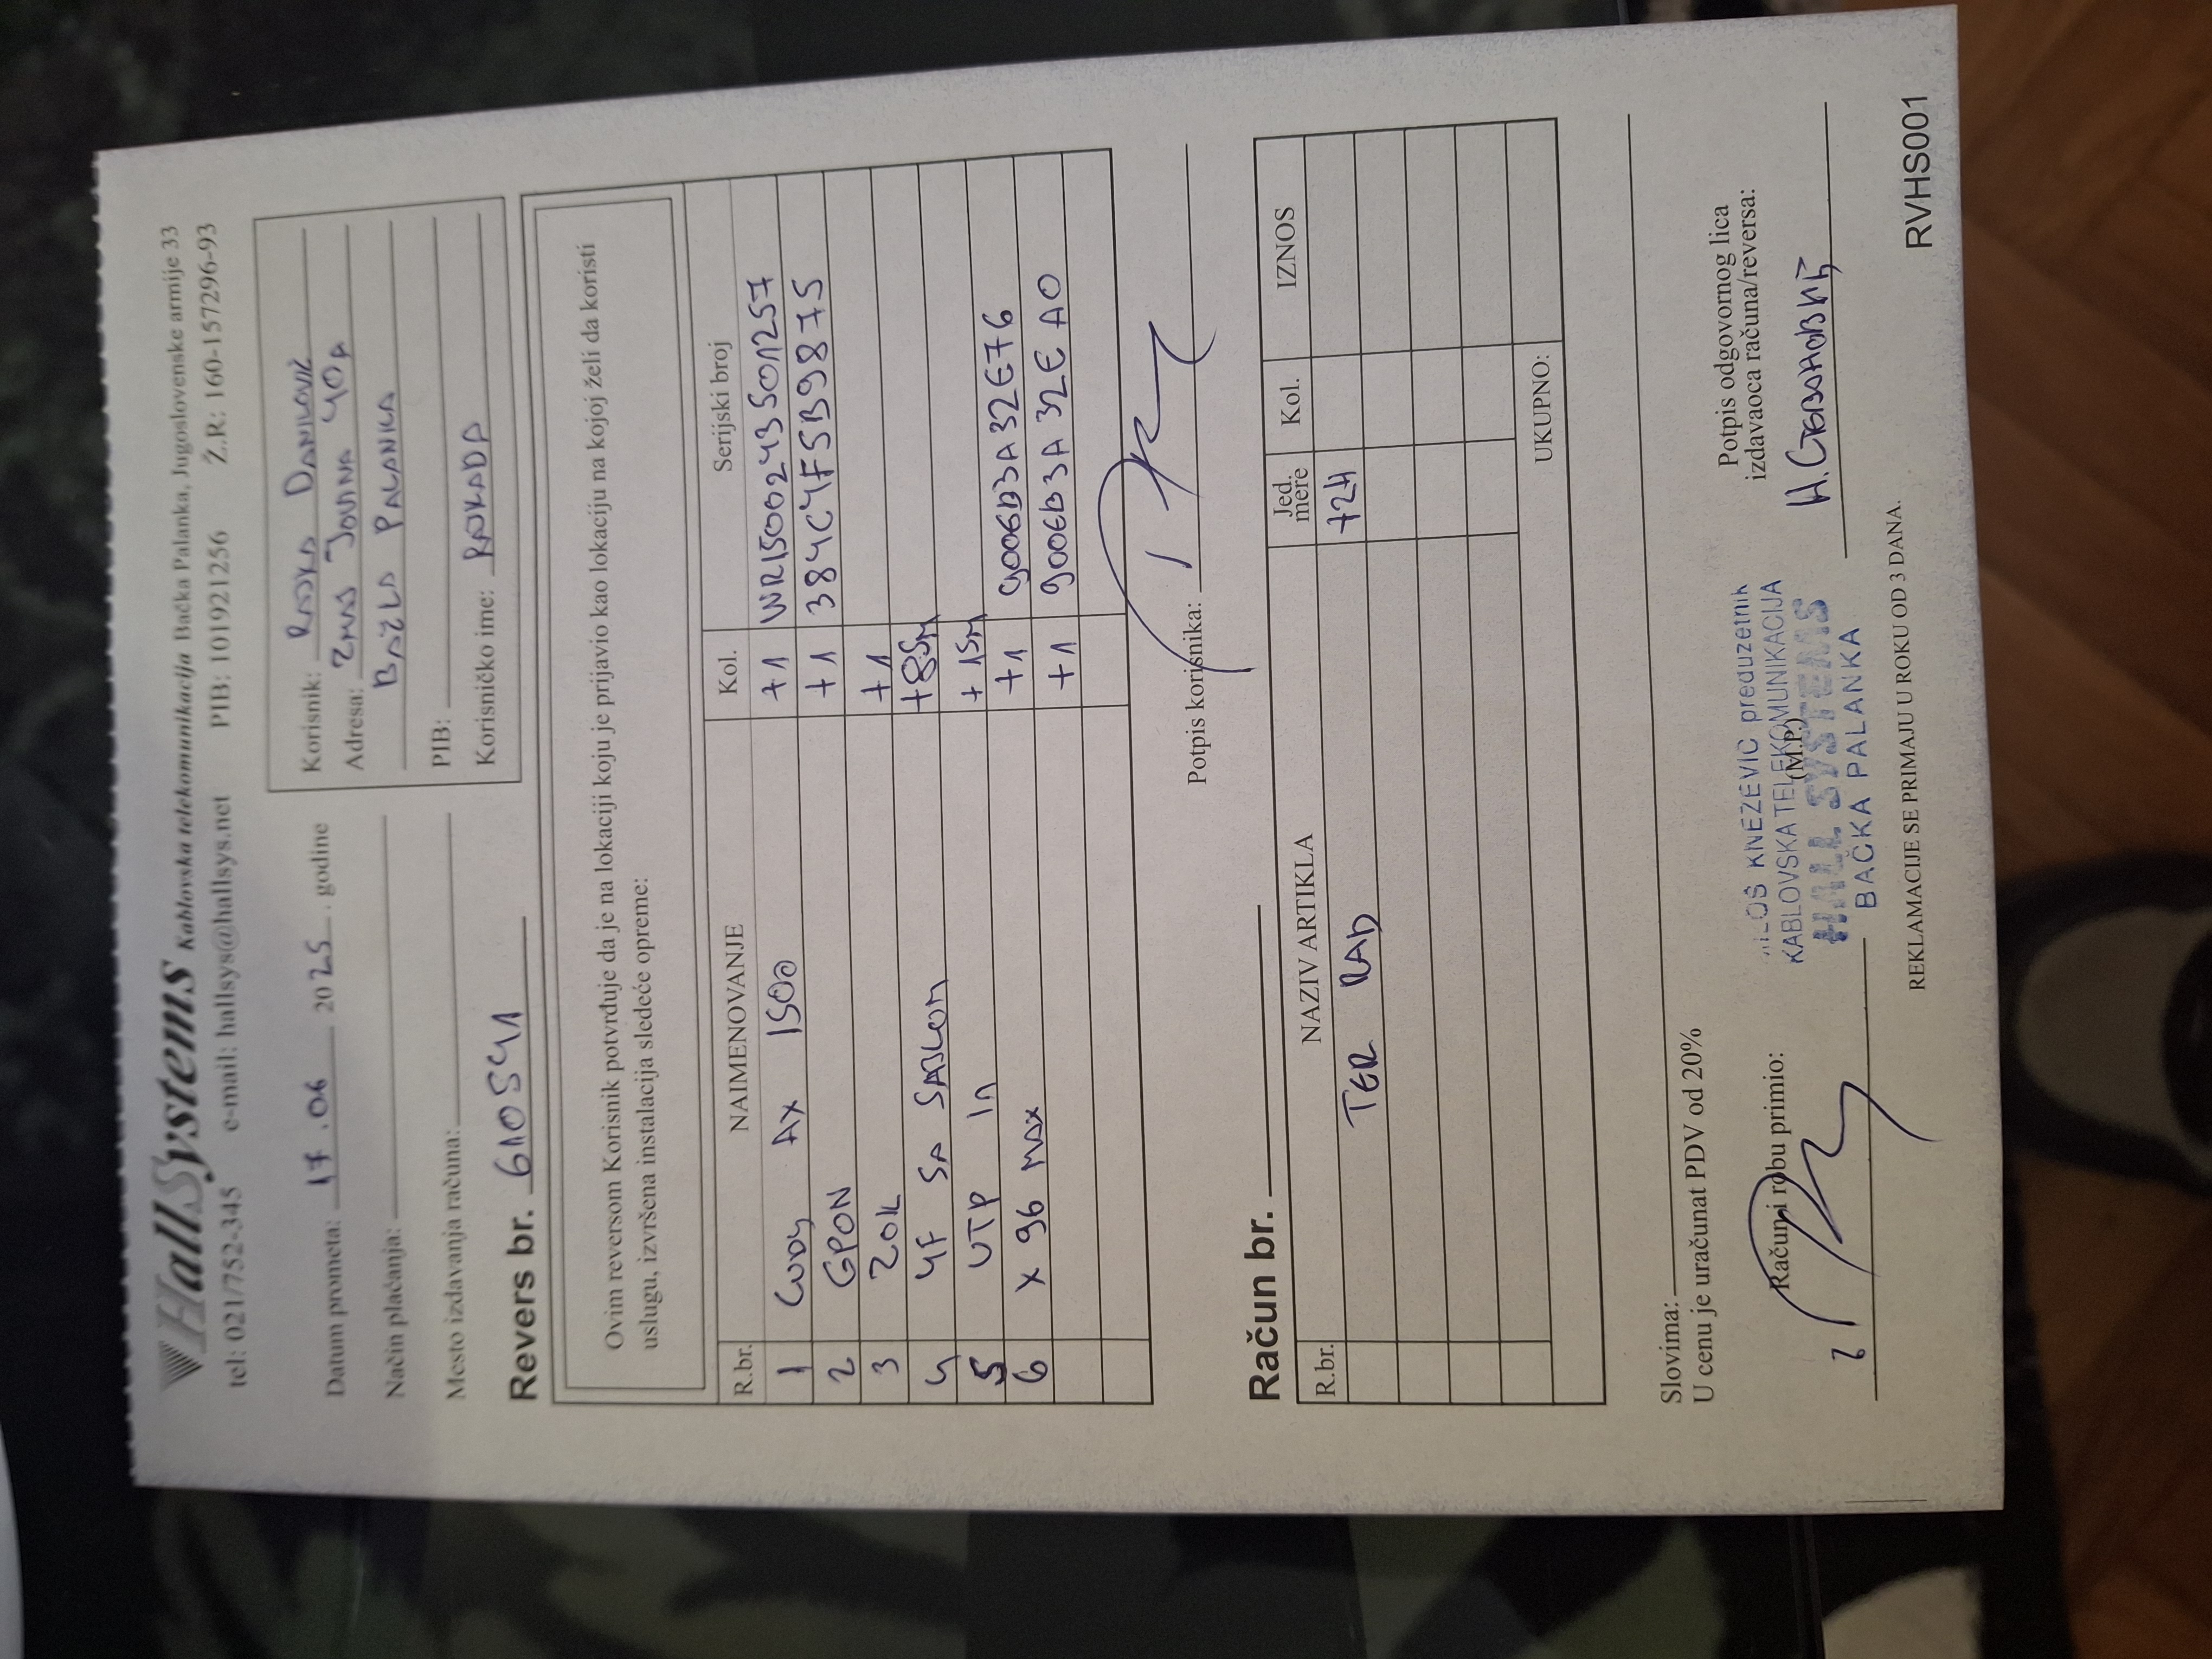 HallSystems Kablovska telekomunikacija Bačka Palanka, Jugoslovenske armije 33
tel: 021/752-345 e-mail: hallsys@hallsys.net PIB: 101921256 Ž.R.: 160-157296-93
Datum prometa: 17.06 2025. godine
Način plaćanja:
Mesto izdavanja računa:
Korisnik: RAJKA DANILOVIĆ
Adresa: ZMAJ JOVINA 40A
BAČKA PALANKA
PIB:
Korisničko ime: RAJKADA
Revers br. 610541
Ovim reversom Korisnik potvrđuje da je na lokaciji koju je prijavio kao lokaciju na kojoj želi da koristi
uslugu, izvršena instalacija sledeće opreme:
R.br. NAIMENOVANJE Kol. Serijski broj
1 CUDY AX 1500 +1 WR1500243501257
2 GPON +1 384C4F5B9875
3 ZOK +1
4 4F SA SAJLOM +85m
5 UTP In +15m
6 X96 MAX +1 9006B3A32E76
+1 9006B3A32EA0
Potpis korisnika:
Račun br.
R.br. NAZIV ARTIKLA Jed. mere Kol. IZNOS
TER RAD +2H
UKUPNO:
Slovima:
U cenu je uračunat PDV od 20%
Račun i robu primio:
(M.P.)
MILOŠ KNEZEVIC preduzetnik
KABLOVSKA TELEKOMUNIKACIJA
HALL SYSTEMS
BAČKA PALANKA
Potpis odgovornog lica
izdavaoca računa/reversa:
REKLAMACIJE SE PRIMAJU U ROKU OD 3 DANA.
RVHS001